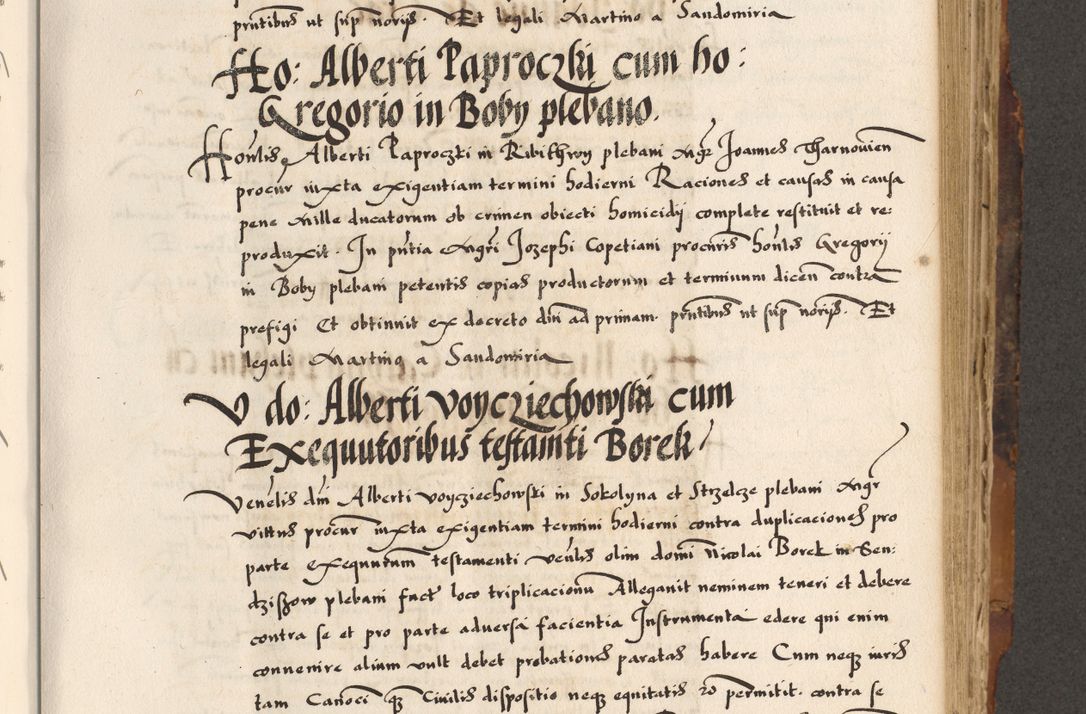 prntibus ut sup noriis. Et legali Martino a Sandomiria
Ho: Alberti Paproczki cum ho:
Gregorio in Boby plebano.
Honlis Alberti Paproczki in plebani Mgr Joannes Tharnouien
procur iuxta exigentiam termini hodierni Raciones et causas in causa
pene Mille ducatorum ob crimen obiecti homicidij complete restituit et re:
produxit. In pntia Mgri Jozephi Copetiani procuris honlis Gregorij
in Boby plebani petentis copias productorum et terminum dicen contra
prefigi Et obtinuit ex decreto dni ad primam. prntibus ut sup noriis. Et
legali Martino a Sandomiria
V do: Alberti Voycziechowski cum
Exequutoribus testamti Borek
Venelis dni Alberti Voycziechowski in Sokolyna et Strzelcze plebani Mgr
vittus procur iuxta exigentiam termini hodierni contra duplicaciones pro
parte exequutum testamenti venlis olim domi Nicolai Borek in Sen:
dziszow plebani fact loco triplicacionu Alleganit neminem teneri et debere
contra se et pro parte adversa facientia Instrumenta edere qui enim
convenire alium vult debet probationes paratas habere Cum neq iuris
tam Canoci q Ciuilis dispositio neq equitatis ro permitit. contra se